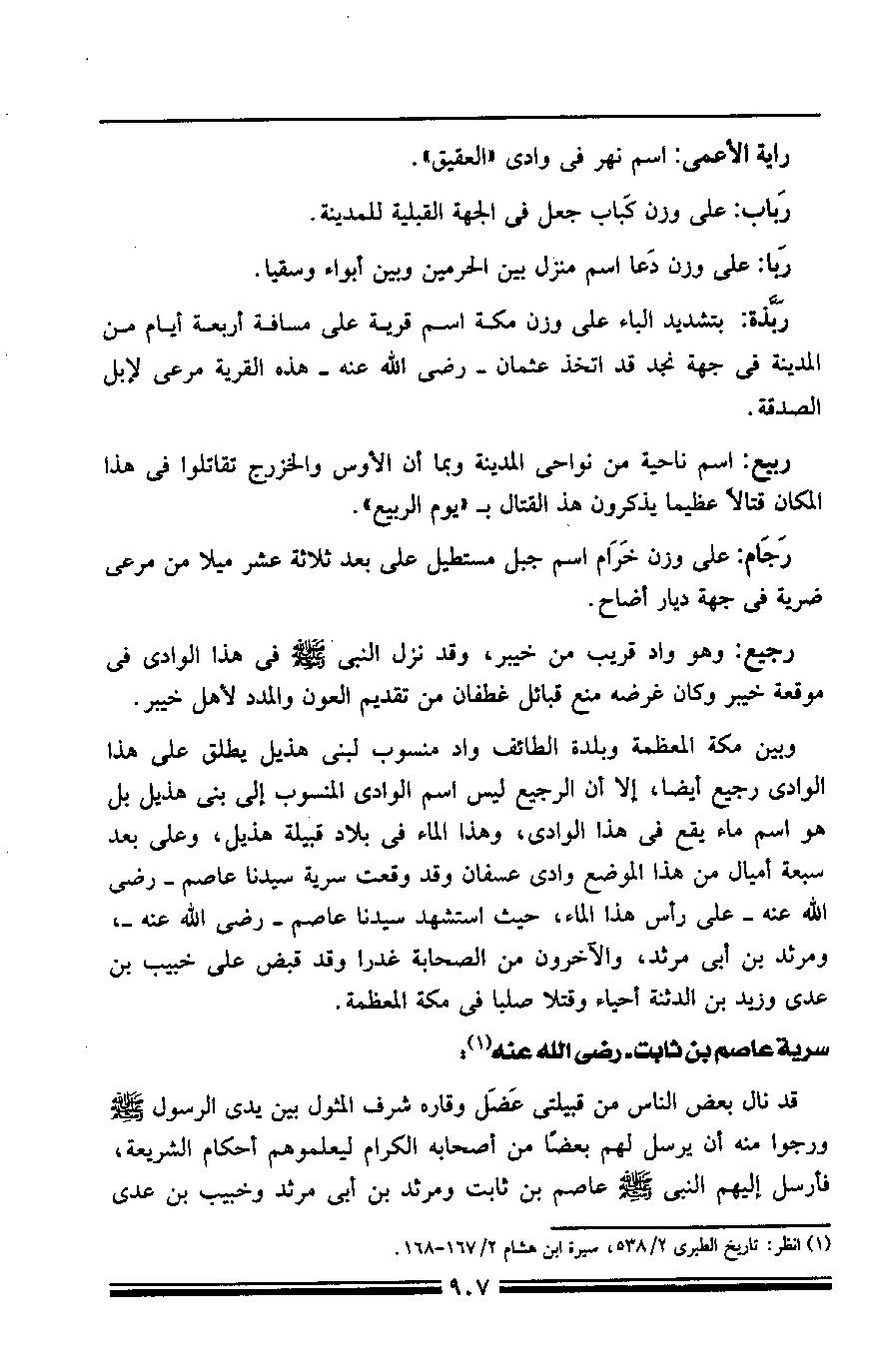 راية الأعمى: اسم نهر فى وادى «العقيق».
رَباب: على وزن كَباب جعل فى الجهة القبلية للمدينة.
رَبا: على وزن دَعا اسم منزل بين الحرمين وبين أبواء وسقيا.
رَبَّذة: بتشديد الباء على وزن مكة اسم قرية على مسافة أربعة أيام من
المدينة فى جهة نجد قد اتخذ عثمان - رضى الله عنه - هذه القرية مرعى لإبل
الصدقة.
ربيع: اسم ناحية من نواحى المدينة وبما أن الأوس والخزرج تقاتلوا فى هذا
المكان قتالاً عظيما يذكرون هذ القتال بـ «يوم الربيع».
رَجَام: على وزن خَرَام اسم جبل مستطيل على بعد ثلاثة عشر ميلا من مرعى
ضرية فى جهة ديار أضاح.
رجيع: وهو واد قريب من خيبر، وقد نزل النبى ﷺ فى هذا الوادى فى
موقعة خيبر وكان غرضه منع قبائل غطفان من تقديم العون والمدد لأهل خيبر.
وبين مكة المعظمة وبلدة الطائف واد منسوب لبنى هذيل يطلق على هذا
الوادى رجيع أيضا، إلا أن الرجيع ليس اسم الوادى المنسوب إلى بنى هذيل بل
هو اسم ماء يقع فى هذا الوادى، وهذا الماء فى بلاد قبيلة هذيل، وعلى بعد
سبعة أميال من هذا الموضع وادى عسفان وقد وقعت سرية سيدنا عاصم - رضى
الله عنه - على رأس هذا الماء، حيث استشهد سيدنا عاصم - رضى الله عنه -،
ومرثد بن أبى مرثد، والآخرون من الصحابة غدرا وقد قبض على خبيب بن
عدى وزيد بن الدثنة أحياء وقتلا صلبا فى مكة المعظمة.
سرية عاصم بن ثابت - رضى الله عنه(١):
قد نال بعض الناس من قبيلتى عَضَل وقاره شرف المثول بين يدى الرسول ﷺ
ورجوا منه أن يرسل لهم بعضًا من أصحابه الكرام ليعلموهم أحكام الشريعة،
فأرسل إليهم النبى ﷺ عاصم بن ثابت ومرثد بن أبى مرثد وخبيب بن عدى
(١) انظر: تاريخ الطبرى ٥٣٨/٢، سيرة ابن هشام ١٦٧/٢-١٦٨.
٩٠٧